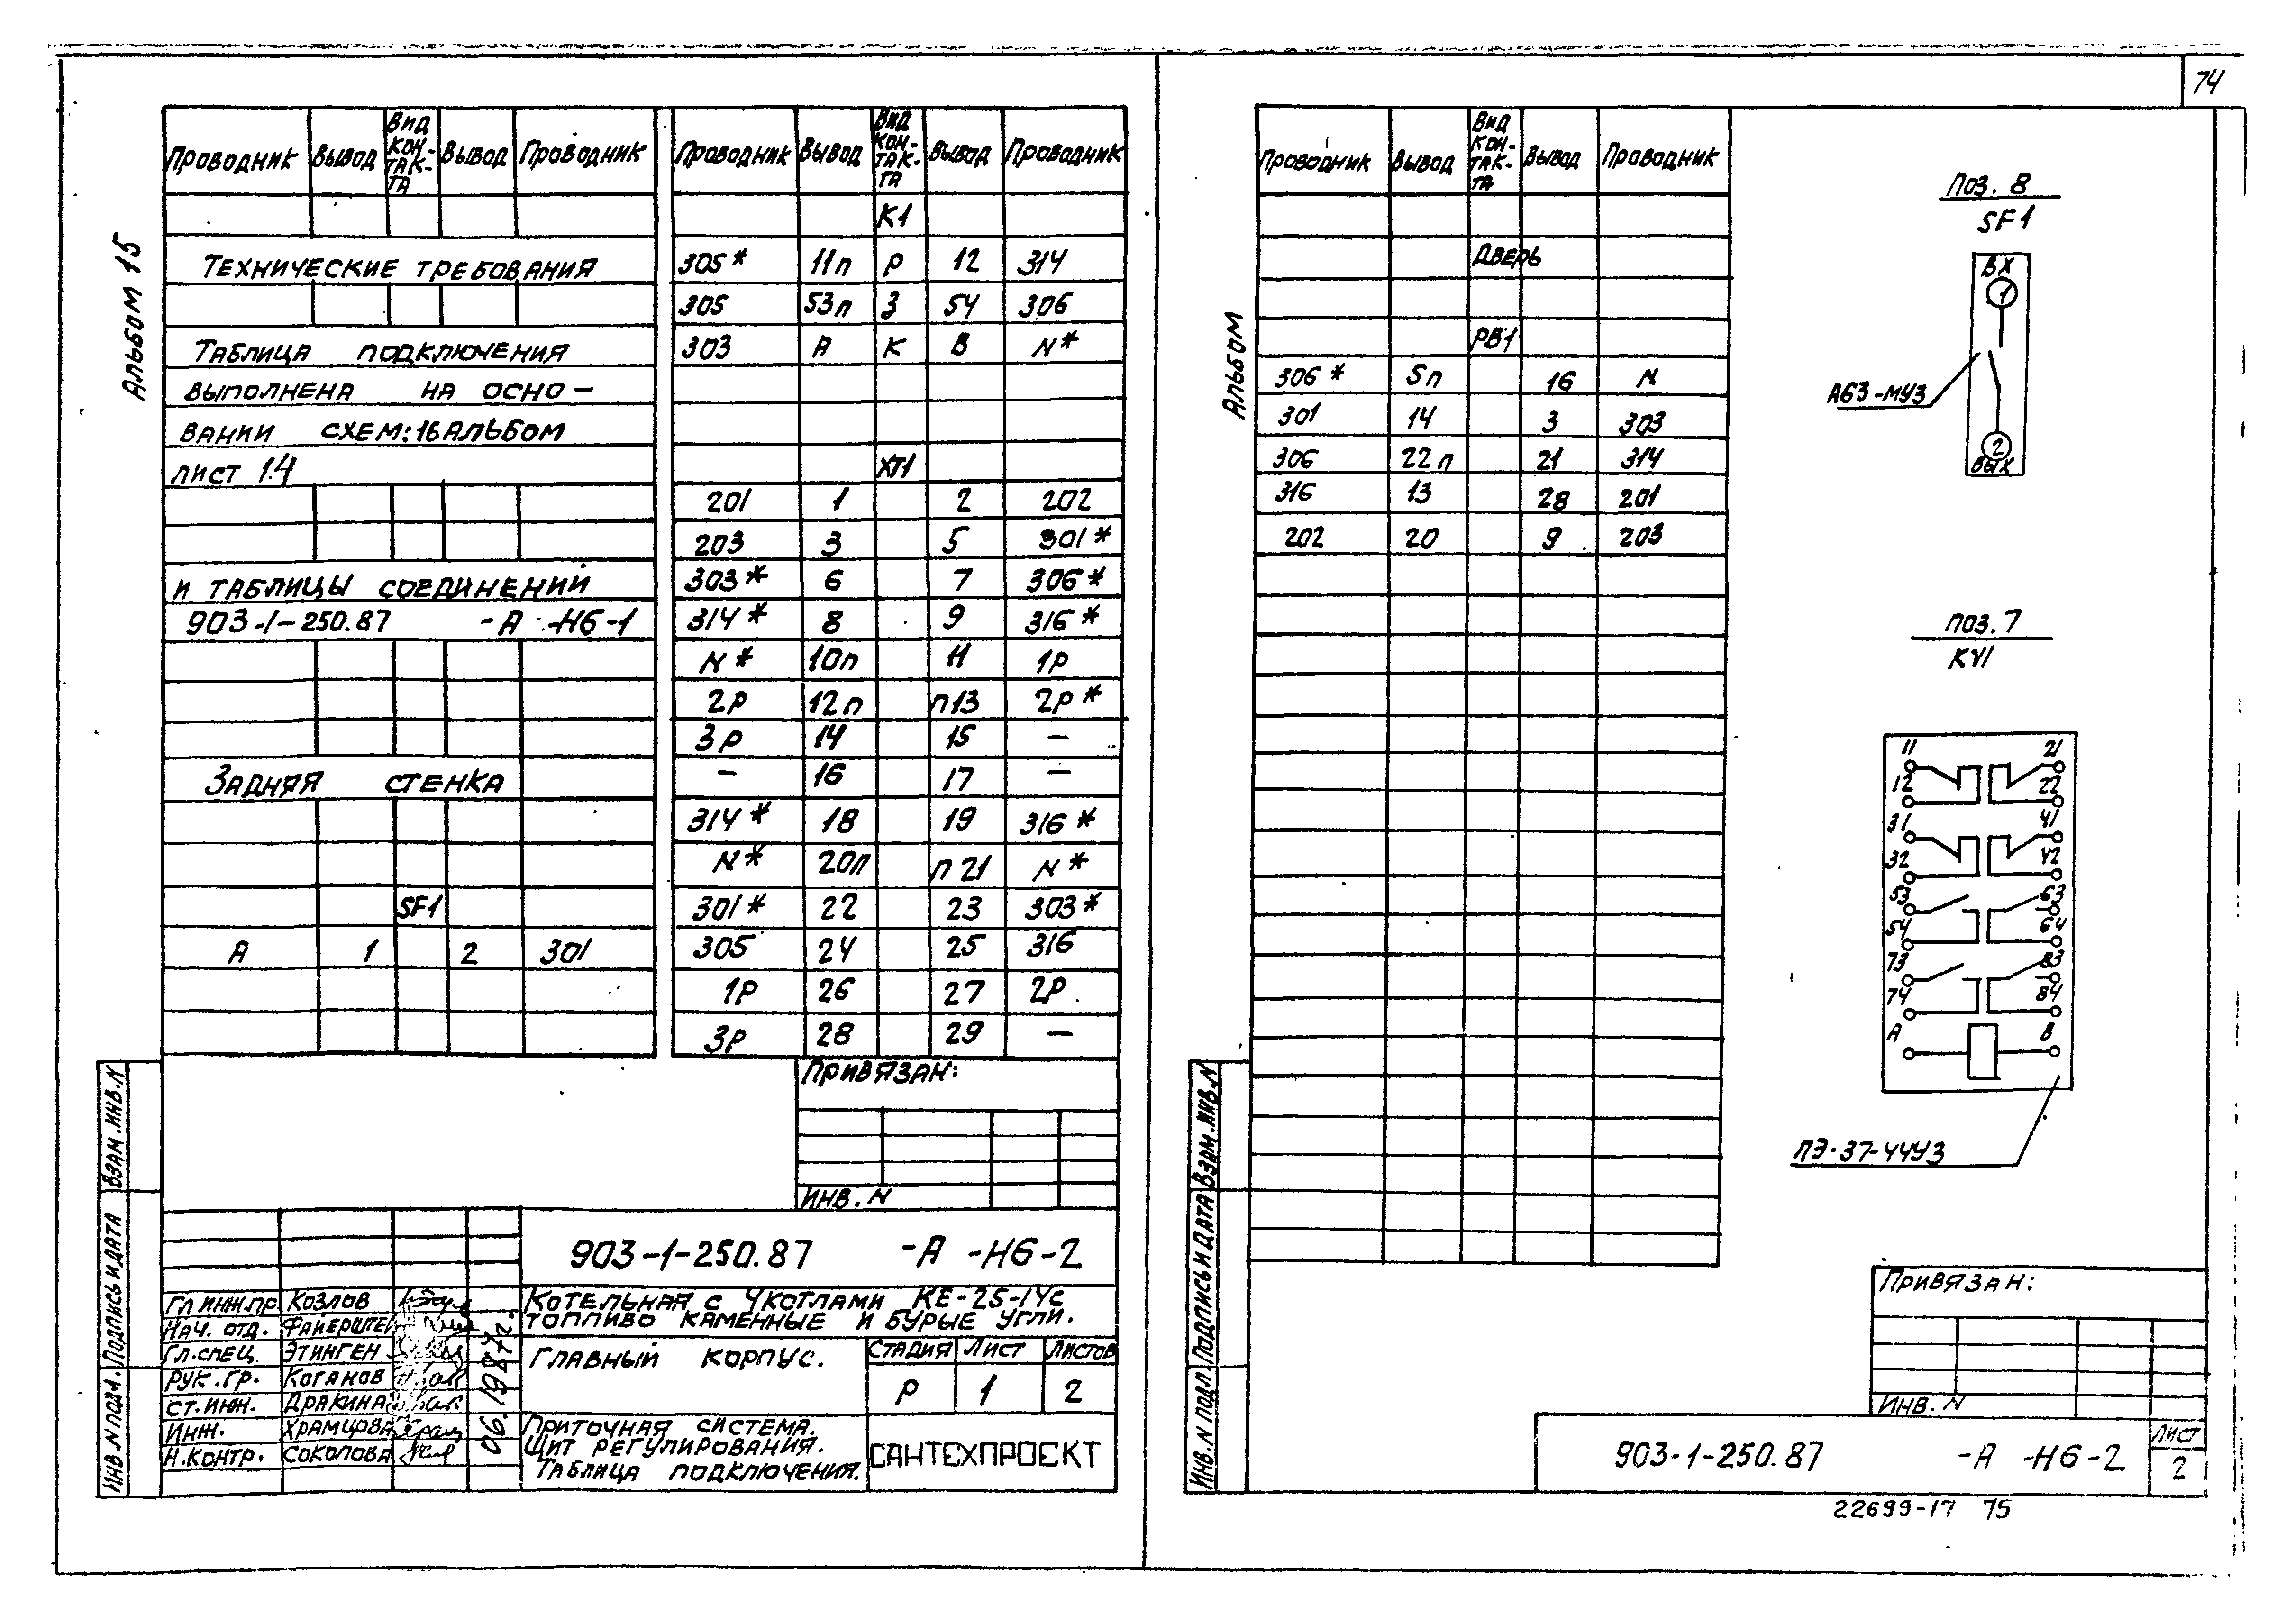 74
Альбом 15
Проводник Вывод Вид контакта Вывод Проводник
Технические требования
Таблица подключения
выполнена на осно-
вании схем: 16 альбом
лист 14
и таблицы соединений
903-1-250.87 -А -Н6-1
Задняя стенка
SF1
А 1 2 301
Проводник Вывод Вид кон-так-та Вывод Проводник
К1
305* 11п Р 12 314
305 53п З 54 306
303 А К В N*
ХТ1
201 1 2 202
203 3 5 301*
303* 6 7 306*
314* 8 9 316*
N* 10п 11 1Р
2Р 12п п13 2Р*
3Р 14 15 –
– 16 17 –
314* 18 19 316*
N* 20п п21 N*
301* 22 23 303*
305 24 25 316
1Р 26 27 2Р
3Р 28 29 –
Привязан:
Инв. N
903-1-250.87 -А -Н6-2
Котельная с 4 котлами КЕ-25-14с
топливо каменные и бурые угли.
Гл инж.пр Козлов
Нач. отд.
Гл. спец. Этинген
Рук. гр. Коганов
Ст. инж. Дракина
Инж. Храмцова
Н. контр. Соколова
06.1987г.
Главный корпус.
Стадия Лист Листов
Р 1 2
Приточная система.
Щит регулирования.
Таблица подключения.
САНТЕХПРОЕКТ
Инв. N подл. Подпись и дата Взам. инв. N
Альбом
Проводник Вывод Вид кон-так-та Вывод Проводник
Дверь
РВ1
306* 5п 16 N
301 14 3 303
306 22п 21 314
316 13 28 201
202 20 9 203
Поз. 8
SF1
ВХ
1
А63-МУ3
2
ВЫХ
Поз. 7
KV1
11 21
12 22
31 41
32 42
53 63
54 64
73 83
74 84
А В
ПЭ-37-44У3
Привязан:
Инв. N
Инв. N подл. Подпись и дата Взам. инв. N
903-1-250.87 -А -Н6-2
Лист
2
22699-17 75